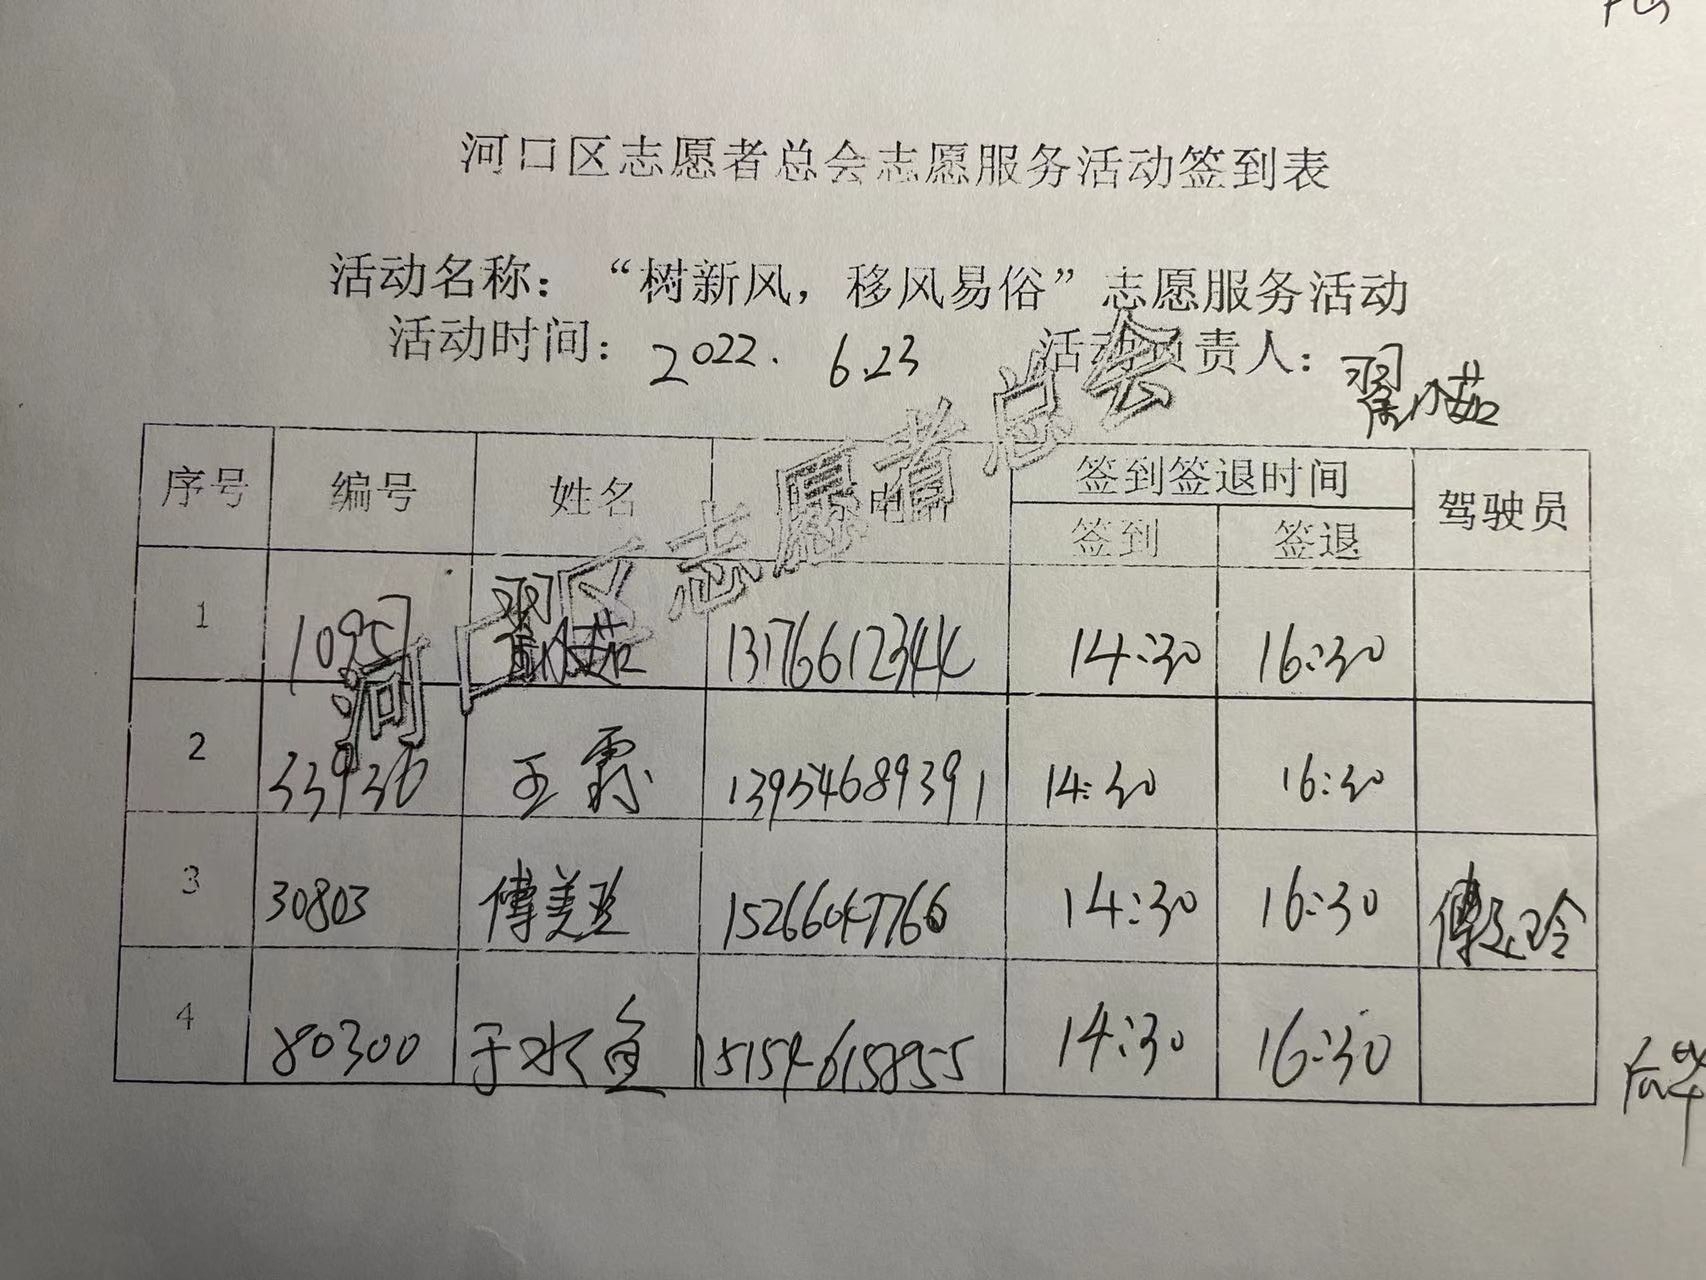 河口区志愿者总会志愿服务活动签到表
活动名称：“树新风，移风易俗”志愿服务活动
活动时间：2022. 6.23 活动负责人：翟冰茹
序号 编号 姓名 电话 签到签退时间 驾驶员
签到 签退
1 10957 翟冰茹 13176612344 14:30 16:30
2 33936 王霞 13954689391 14:30 16:30
3 30803 傅美玲 15266047766 14:30 16:30 傅美玲
4 80300 于水鱼 15154615895 14:30 16:30
河口区志愿者总会